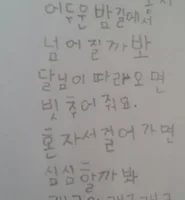 어두운 밤길에서
넘어질까 봐
달님이 따라오면
빗추어 줘요.
혼자서 걸어가면
심심할까 봐